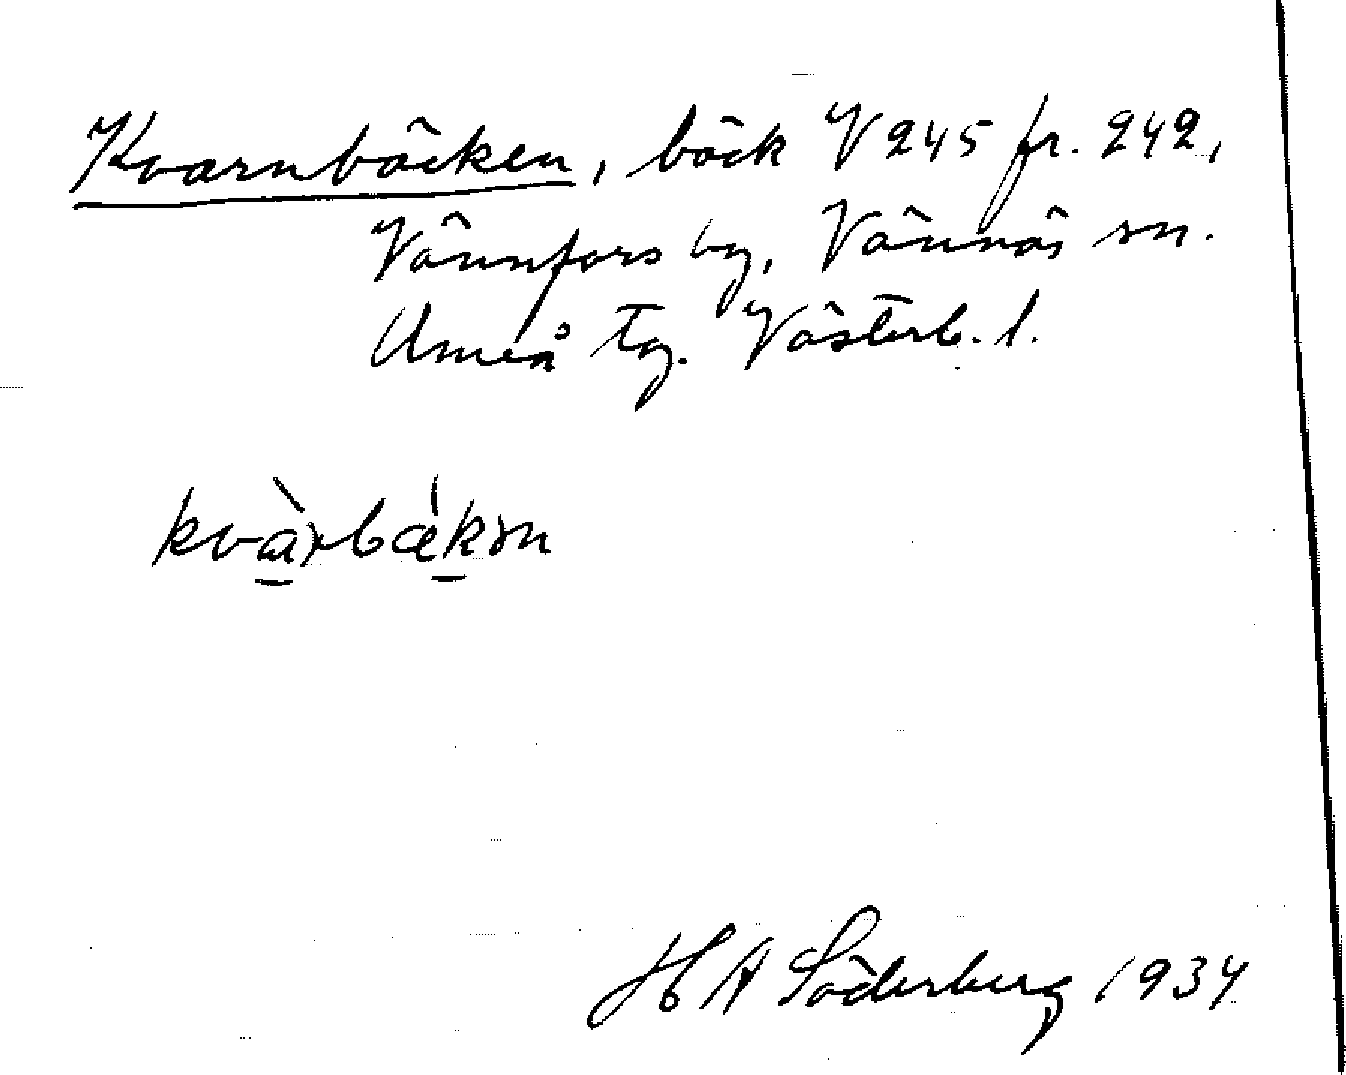 Kvarnbäcken, bäck V 245 fr. 242,
Vännfors by, Vännäs sn.
Umeå tg. Västerb. l.
kvàrbækən
H A Söderberg 1934